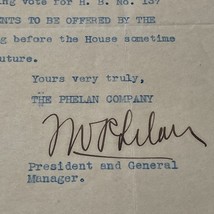 ing vote for H. B. No. 137
ENTS TO BE OFFERED BY THE
ng before the House sometime
uture.
Yours very truly,
THE PHELAN COMPANY
Phelan
President and General
Manager.